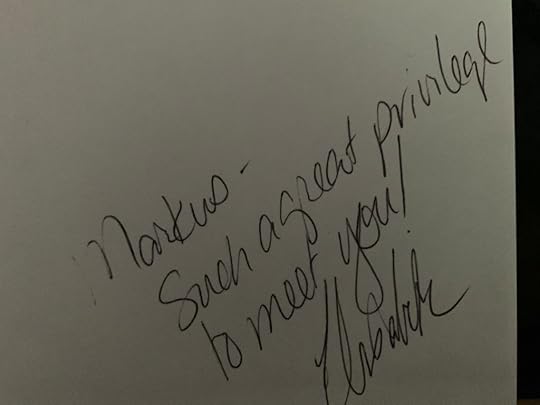 Markus-
Such a great privilege
to meet you!